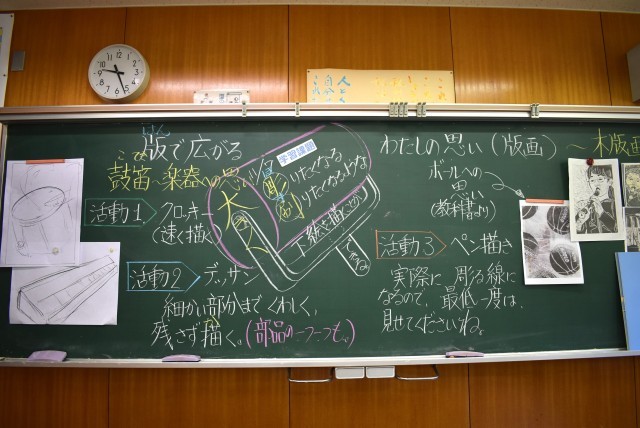 はん
版で広がる
こてき
鼓笛へ楽器への思い
活動1 クロッキー
(速く描く)
活動2 デッサン
細かい部分までくわしく、
残さず描く。(部品の一つ一つも。)
学習課題
けたくなる
けたくなるような
下絵を描こう
わたしの思い(版画)～木版画
ボールへの
思い
(教科書より)
活動3 ペン描き
実際に彫る線に
なるので、最低一度は
見せてくださいね。